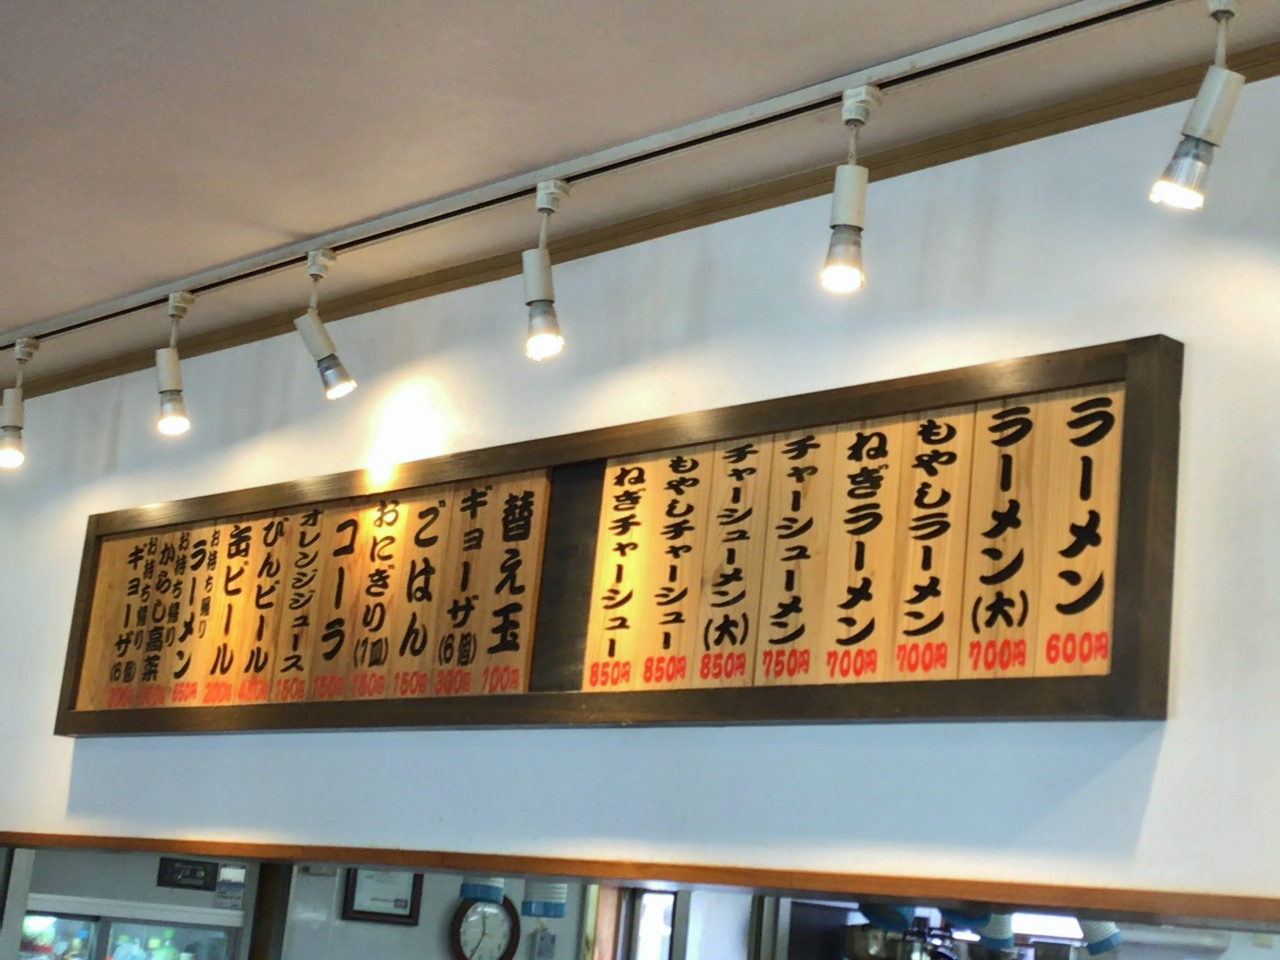 ラーメン 600円
ラーメン(大) 700円
もやしラーメン 700円
ねぎラーメン 700円
チャーシューメン 750円
チャーシューメン(大) 850円
もやしチャーシュー 850円
ねぎチャーシュー 850円
替え玉 100円
ギョーザ(6個) 300円
ごはん 150円
おにぎり(1皿) 150円
コーラ 150円
オレンジジュース 150円
びんビール
缶ビール 200円
お持ち帰り
ラーメン 650円
お持ち帰り
からし高菜
お持ち帰り
ギョーザ(6個)